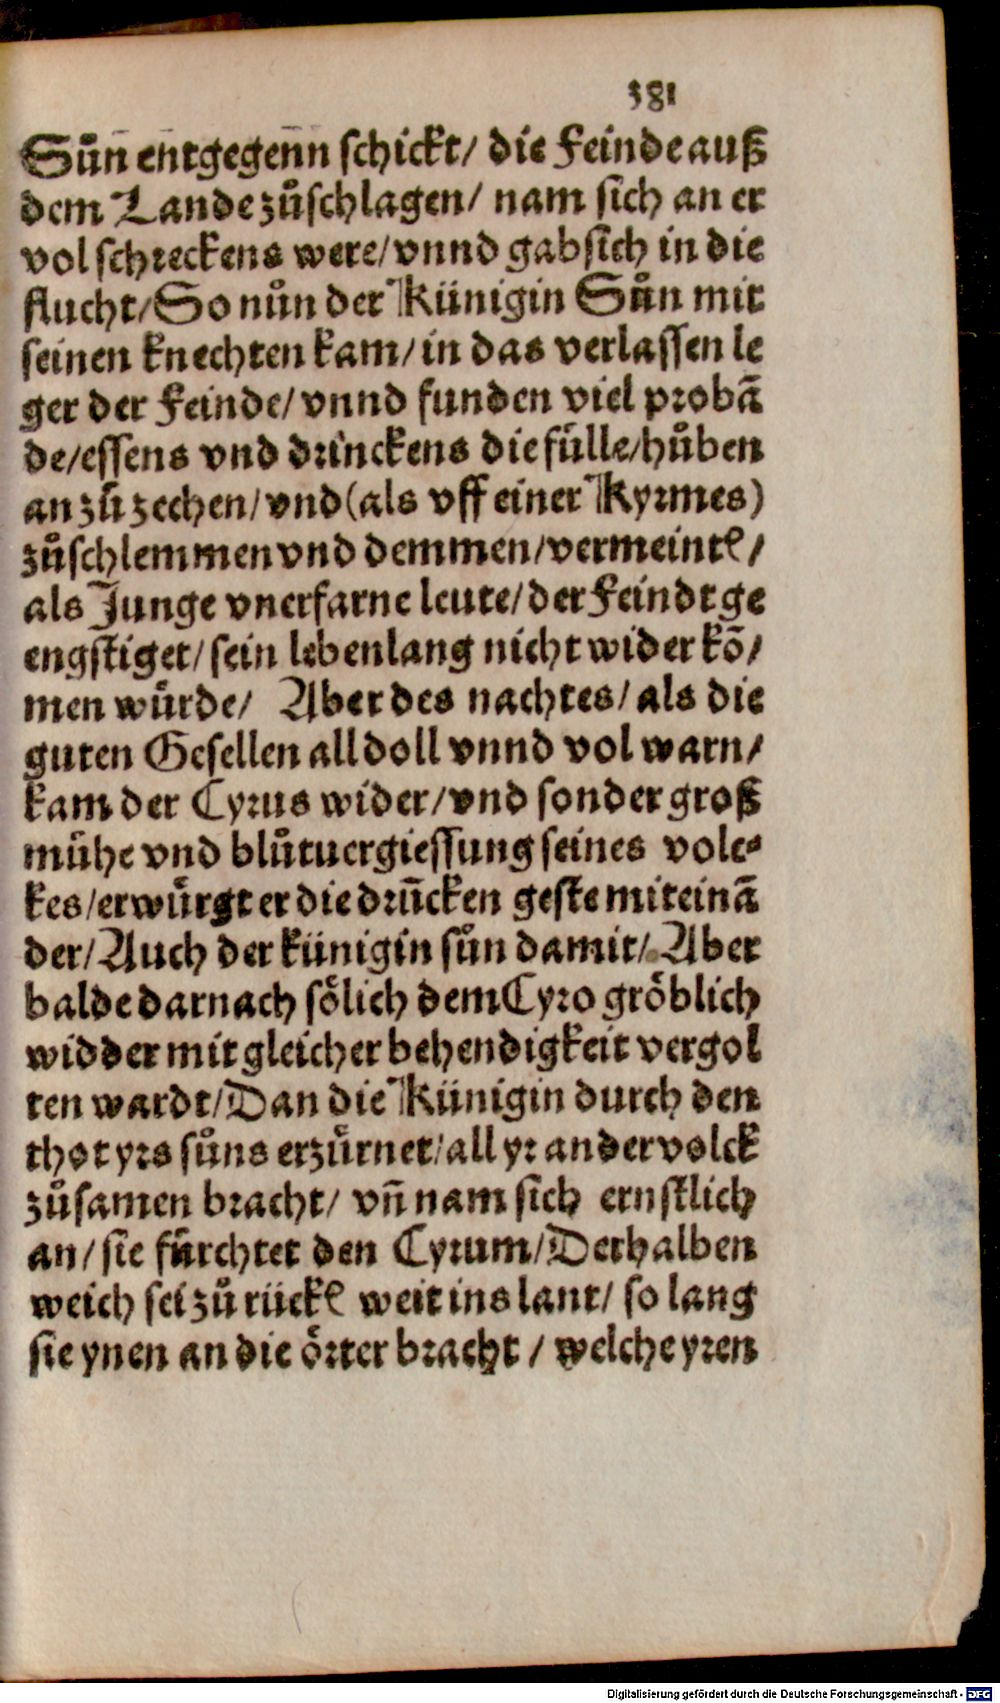 381
Sůn entgegenn schickt/ die Feinde auß
dem Lande zůschlagen/ nam sich an er
vol schreckens were/vnnd gab sich in die
flucht/So nůn der Künigin Sůn mit
seinen knechten kam/in das verlassen le
ger der Feinde/vnnd funden viel probā
de/essens vnd drinckens die fülle/hůben
an zů zechen/vnd (als vff einer Kyrmes)
zůschlemmen vnd demmen/vermeintẽ/
als Junge vnerfarne leute/der Feindt ge
engstiget/sein lebenlang nicht wider kō/
men würde/ Aber des nachtes/als die
guten Gesellen all doll vnnd vol warn/
kam der Cyrus wider/vnd sonder groß
mühe vnd blůtuergiessung seines vole⸗
kes/erwürgt er die drūcken geste mit einā
der/Auch der künigin sůn damit/Aber
balde darnach sölich dem Cyro gröblich
widder mit gleicher behendigkeit vergol
ten wardt/Dan die Künigin durch den
thot yrs sůns erzürnet/all yr ander volck
zůsamen bracht/ vñ nam sich ernstlich
an/sie fürchtet den Cyrum/Derhalben
weich sei zů rückẽ weit ins lant/ so lang
sie ynen an die örter bracht / welche yren
Digitalisierung gefördert durch die Deutsche Forschungsgemeinschaft - DFG